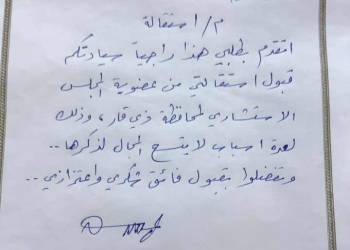 م/ استقالة
اتقدم بطلبي هذا راجياً سيادتكم
قبول استقالتي من عضوية المجلس
الاستشاري لمحافظة ذي قار، وذلك
لعدة اسباب لا يتسع المجال لذكرها..
وتفضلوا بقبول فائق شكري واعتزازي..